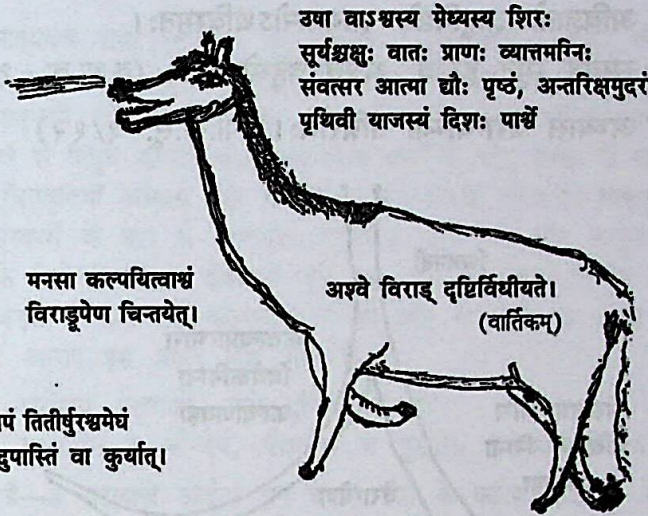 उषा वाऽश्वस्य मेध्यस्य शिरः
सूर्यश्चक्षुः वातः प्राणः व्यात्तमग्निः
संवत्सर आत्मा द्यौः पृष्ठं, अन्तरिक्षमुदरं
पृथिवी याजस्यं दिशः पार्श्वे
मनसा कल्पयित्वाश्वं
विराड्रूपेण चिन्तयेत्।
अश्वे विराड् दृष्टिर्विधीयते।
(वार्तिकम्)
तितीर्षुरश्वमेधं
वा कुर्यात्।